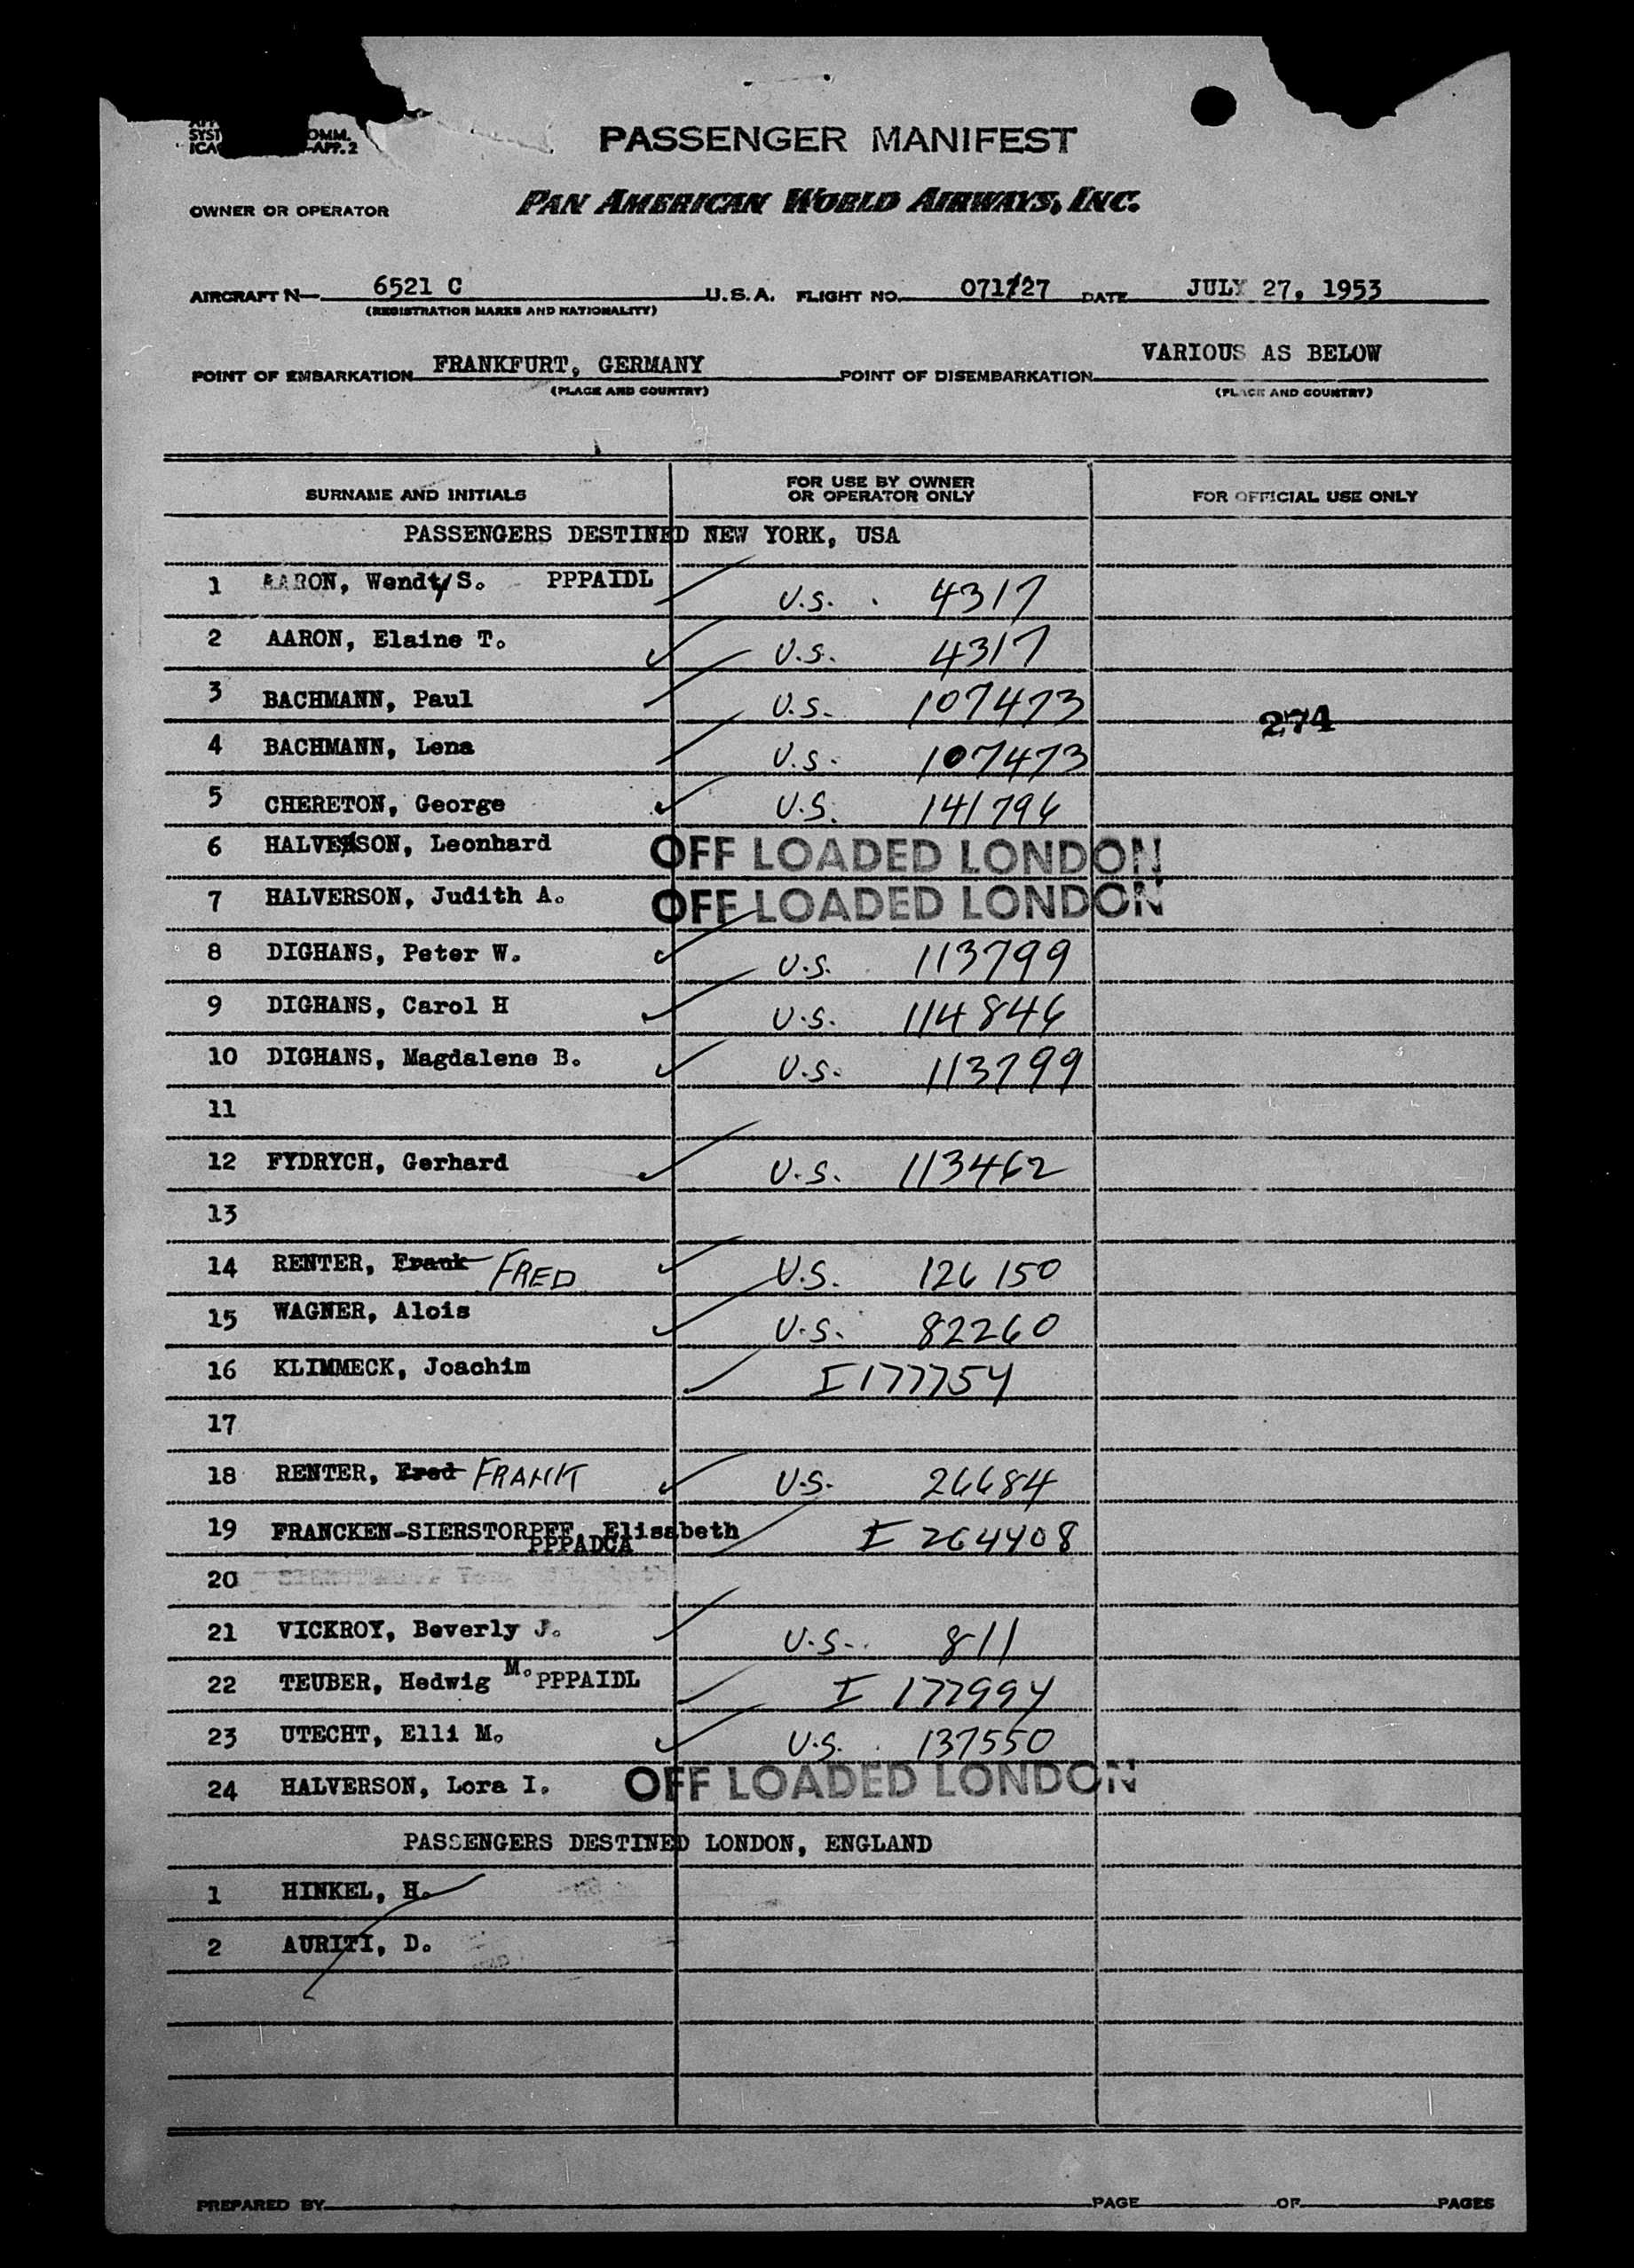 SYST OMM.
ICA -APP. 2
PASSENGER MANIFEST
OWNER OR OPERATOR PAN AMERICAN WORLD AIRWAYS, INC.
AIRCRAFT N— 6521 C U.S.A. FLIGHT NO. DATE JULY 27, 1953
(REGISTRATION MARKS AND NATIONALITY)
VARIOUS AS BELOW
POINT OF EMBARKATION FRANKFURT, GERMANY POINT OF DISEMBARKATION
(PLACE AND COUNTRY) (PLACE AND COUNTRY)
SURNAME AND INITIALS FOR USE BY OWNER OR OPERATOR ONLY FOR OFFICIAL USE ONLY
PASSENGERS DESTINED NEW YORK, USA
1 AARON, Wendy S. PPPAIDL U.S. 4317
2 AARON, Elaine T. U.S. 4317
3 BACHMANN, Paul U.S. 107473
274
4 BACHMANN, Lena U.S. 107473
5 CHERETON, George U.S. 141796
6 HALVERSON, Leonhard OFF LOADED LONDON
7 HALVERSON, Judith A. OFF LOADED LONDON
8 DIGHANS, Peter W. U.S. 113799
9 DIGHANS, Carol H U.S. 114846
10 DIGHANS, Magdalene B. U.S. 113799
11
12 FYDRYCH, Gerhard U.S. 113462
13
14 RENTER, Frank FRED U.S. 126150
15 WAGNER, Alois U.S. 82260
16 KLIMMECK, Joachim I 177754
17
18 RENTER, Fred FRANK U.S. 26684
19 FRANCKEN-SIERSTORPFF, Elisabeth I 264408
PPPADCA
20
21 VICKROY, Beverly J. U.S. 811
22 TEUBER, Hedwig M. PPPAIDL I 177994
23 UTECHT, Elli M. U.S. 137550
24 HALVERSON, Lora I. OFF LOADED LONDON
PASSENGERS DESTINED LONDON, ENGLAND
1 HINKEL, H.
2 AURITI, D.
PREPARED BY PAGE OF PAGES